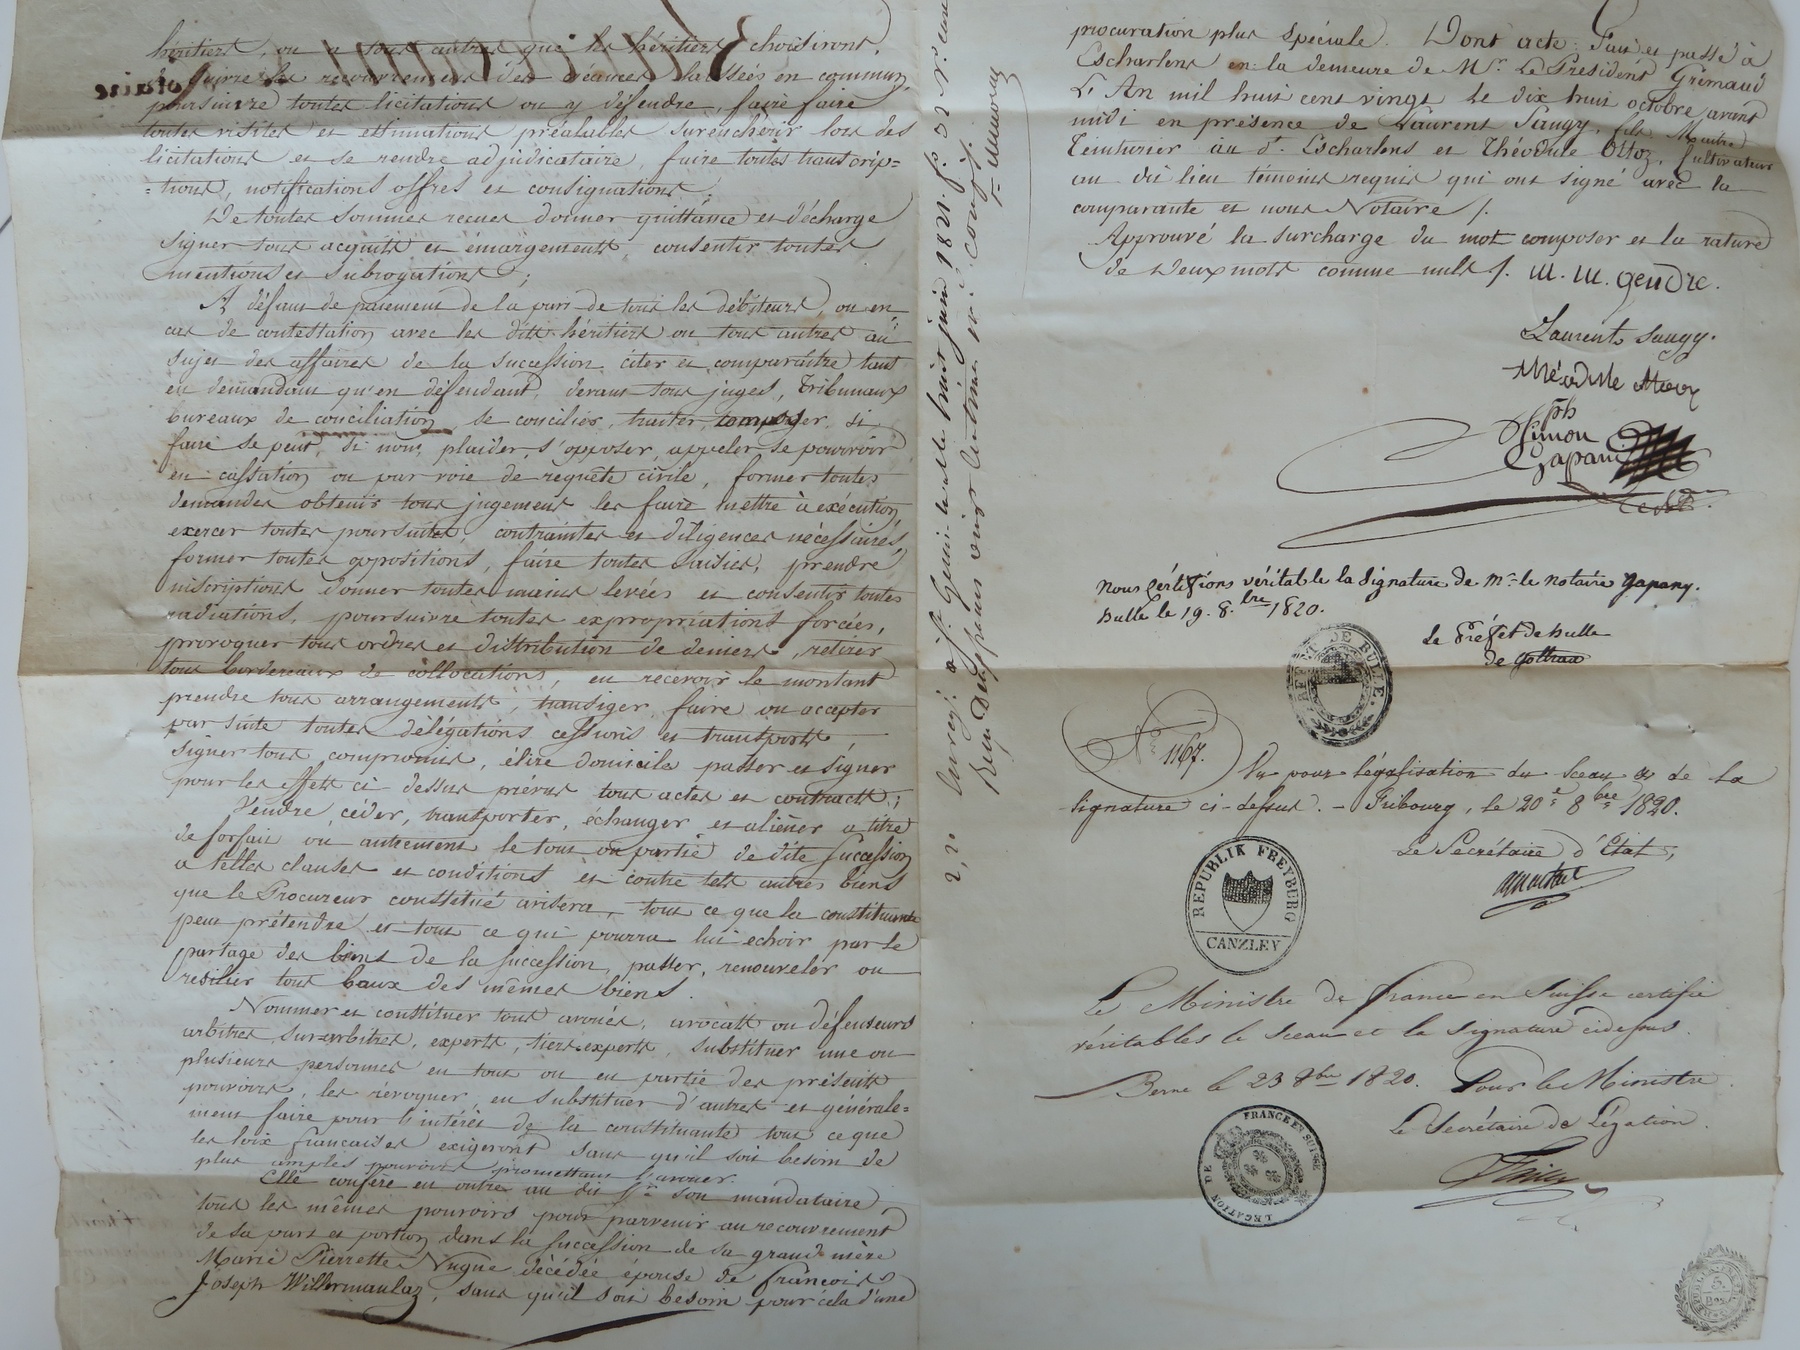 héritiers, ou à tous autres que les héritiers choisiront,
suivre les recouvrements des créances laissées en commun,
poursuivre toutes licitations ou y défendre, faire faire
toutes visites et estimations préalables surenchérir lors des
licitations et se rendre adjudicataire, faire toutes transcrip=
=tions, notifications offres et consignations;
De toutes sommes recues donner quittance et décharge
signer tous acquits et émargements, consentir toutes
mentions et subrogations;
A défaut de paiement de la part de tous les débiteurs, ou en
cas de contestation avec les dits héritiers ou tous autres au
sujet des affaires de la succession, citer et comparaître tant
en demandant qu'en défendant, devant tous juges, Tribunaux
bureaux de conciliation, se concilier, traiter, composer, si
faire se peut, si non, plaider, s'opposer, appeler, se pourvoir
en cassation ou par voie de requête civile, former toutes
demandes obtenir tous jugements les faire mettre à exécution
exercer toutes poursuites, contraintes et diligences nécessaires,
former toutes oppositions, faire toutes saisies, prendre
inscriptions donner toutes mains levées et consentir toutes
radiations, poursuivre toutes expropriations forcées,
provoquer tous ordres et distribution de deniers, retirer
tous bordereaux de collocations, en recevoir le montant
prendre tous arrangements, transiger, faire ou accepter
par suite toutes délégations cessions et transports,
signer tous compromis, élire domicile passer et signer
pour les effets ci dessus prévus tous actes et contracts;
Vendre, céder, transporter, échanger et aliéner à titre
de forfait ou autrement le tout ou partie de dite succession
a telles clauses et conditions et contre tels autres biens
que le Procureur constitué avisera, tout ce que la constituante
peut prétendre et tout ce qui pourra lui echoir par le
partage des biens de la succession, passer, renouveler ou
resilier tous baux des mêmes biens.
Nommer et constituer tous avoués, avocats ou défenseurs
arbitres, sur-arbitres, experts, tiers experts, substituer une ou
plusieurs personnes en tout ou en partie des présents
pouvoirs, les révoquer, en substituer d'autres et générale=
ment faire pour l'intérêt de la constituante tout ce que
les loix françaises exigeront sans qu'il soit besoin de
plus amples pouvoirs promettant l'avouer.
Elle confère en outre au dit Sr. son mandataire,
tous les mêmes pouvoirs pour parvenir au recouvrement
de sa part et portion dans la succession de sa grand'mère
Marie Pierrette Nugue décédée épouse de françois
Joseph Willermaulaz, sans qu'il soit besoin pour cela d'une
procuration plus spéciale. Dont acte: Fait et passé à
Escharlens en la demeure de Mr. Le Président Grémaud
L'An mil huit cent vingt Le dix huit octobre avant
midi en présence de Laurent Saugy, fils, Maitre
Teinturier au dt. Escharlens et Théodule Ottoz, Cultivateur
au dit lieu témoins requis qui ont signé avec la
comparante et nous Notaire /.
Approuvé la surcharge du mot composer et la rature
de deux mots comme nuls /. m. m. gendre.
Laurent Saugy.
ph
Simon
Gapani
Nous Certifions véritable la Signature de Mr. le notaire Gapany.
Bulle le 19. 8.bre 1820.
Le Préfet de Bulle
de Gottrau
PREFET DE BULLE
No. 1167.
Vu pour légalisation du Sceau & de la
Signature ci-dessus. - Fribourg, le 20e 8bre 1820.
Le Secrétaire d'Etat,
REPUBLIK FREYBURG
CANZLEY
Le Ministre de france en Suisse certifie
véritables le Sceau et la Signature ci dessus.
Berne le 23 8bre 1820. Pour le Ministre
Le Secrétaire de Légation.
LEGATION DE FRANCE EN SUISSE